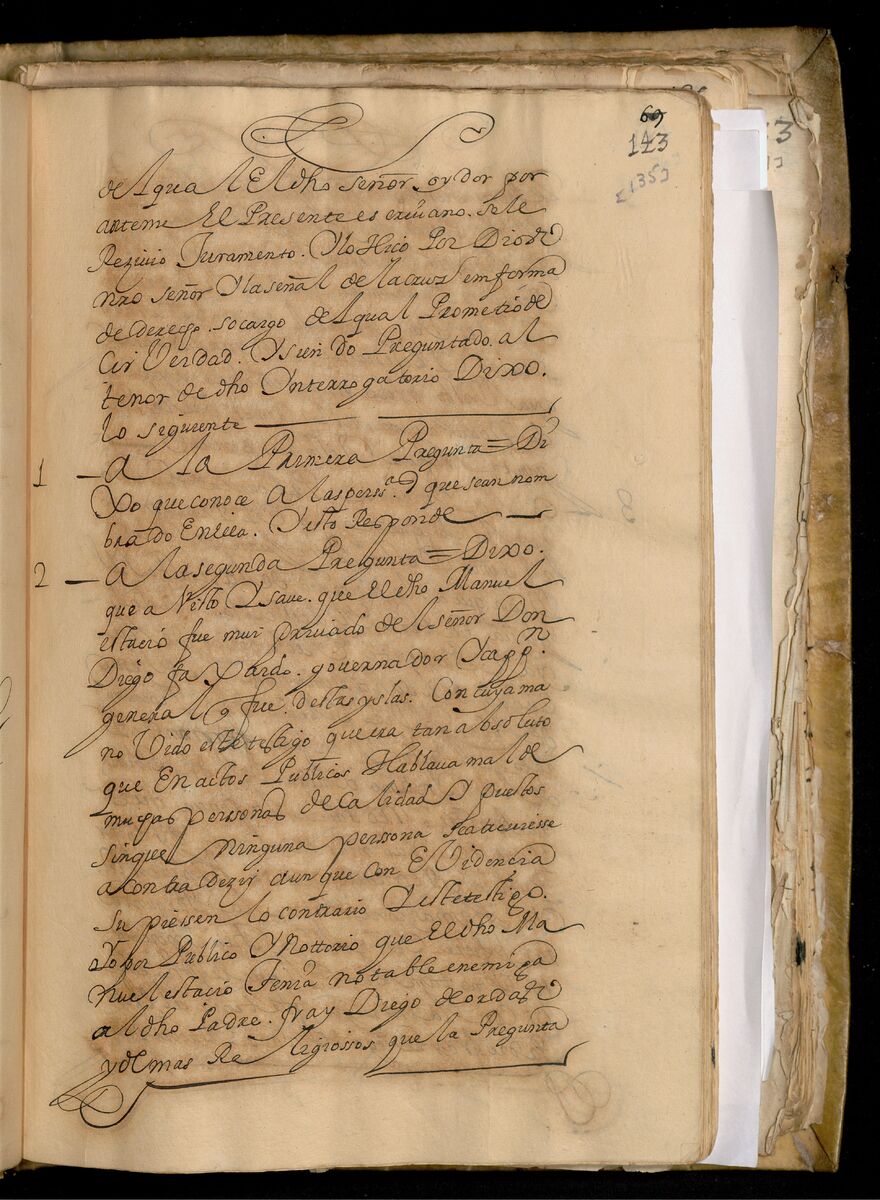 69
143
[135]
del qual El dho señor oydor por
anteme El Presente escriuano. Sele
Reziuio Juramento. Ylo Hiço Por Dios
nro señor Yla señal dela cruz en forma
de derecho. socargo del qual Prometio de
Cir Verdad. Y sien do Preguntado. al
tenor de dho Ynterrogatorio Dixo.
lo siguiente
1 - A la Primera Pregunta = Di
Xo que conoce A las perss.ª q que sean nom
brado En ella. Y esto Responde
2 - A la segunda Pregunta = Dixo.
que a Visto Y saue. que El dho Manuel
estaçio fue mui priuado del señor Don
Diego faxardo. gouernador Y capp.n
general q fue. destas yslas. Con cuya ma
no Vido este testigo que era tan absoluto
que En actos Publicos Hablaua mal de
muchas perssonas de Calidad Y puestos
sinque ninguna perssona se atreuiesse
a contra dezir aun que con Evidencia
Supiessen lo contrario Y este testigo.
Vio por Publico Y Nottorio que El dho Ma
nuel estaçio Tenia notable enemiga
al dho Padre. fray Diego de ordas
y demas Re ligiossos que la Pregunta